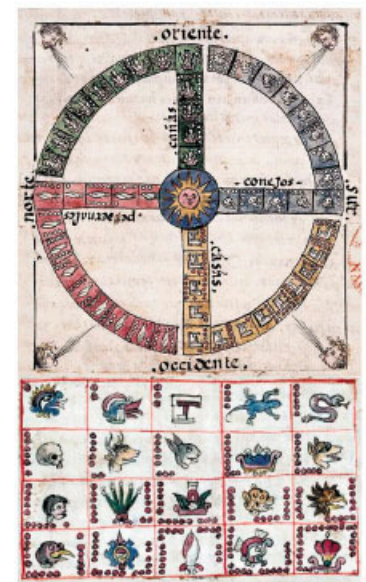 .oriente.
cañas.
norte.
conejos.
sur.
pedernales
casas.
.occidente.